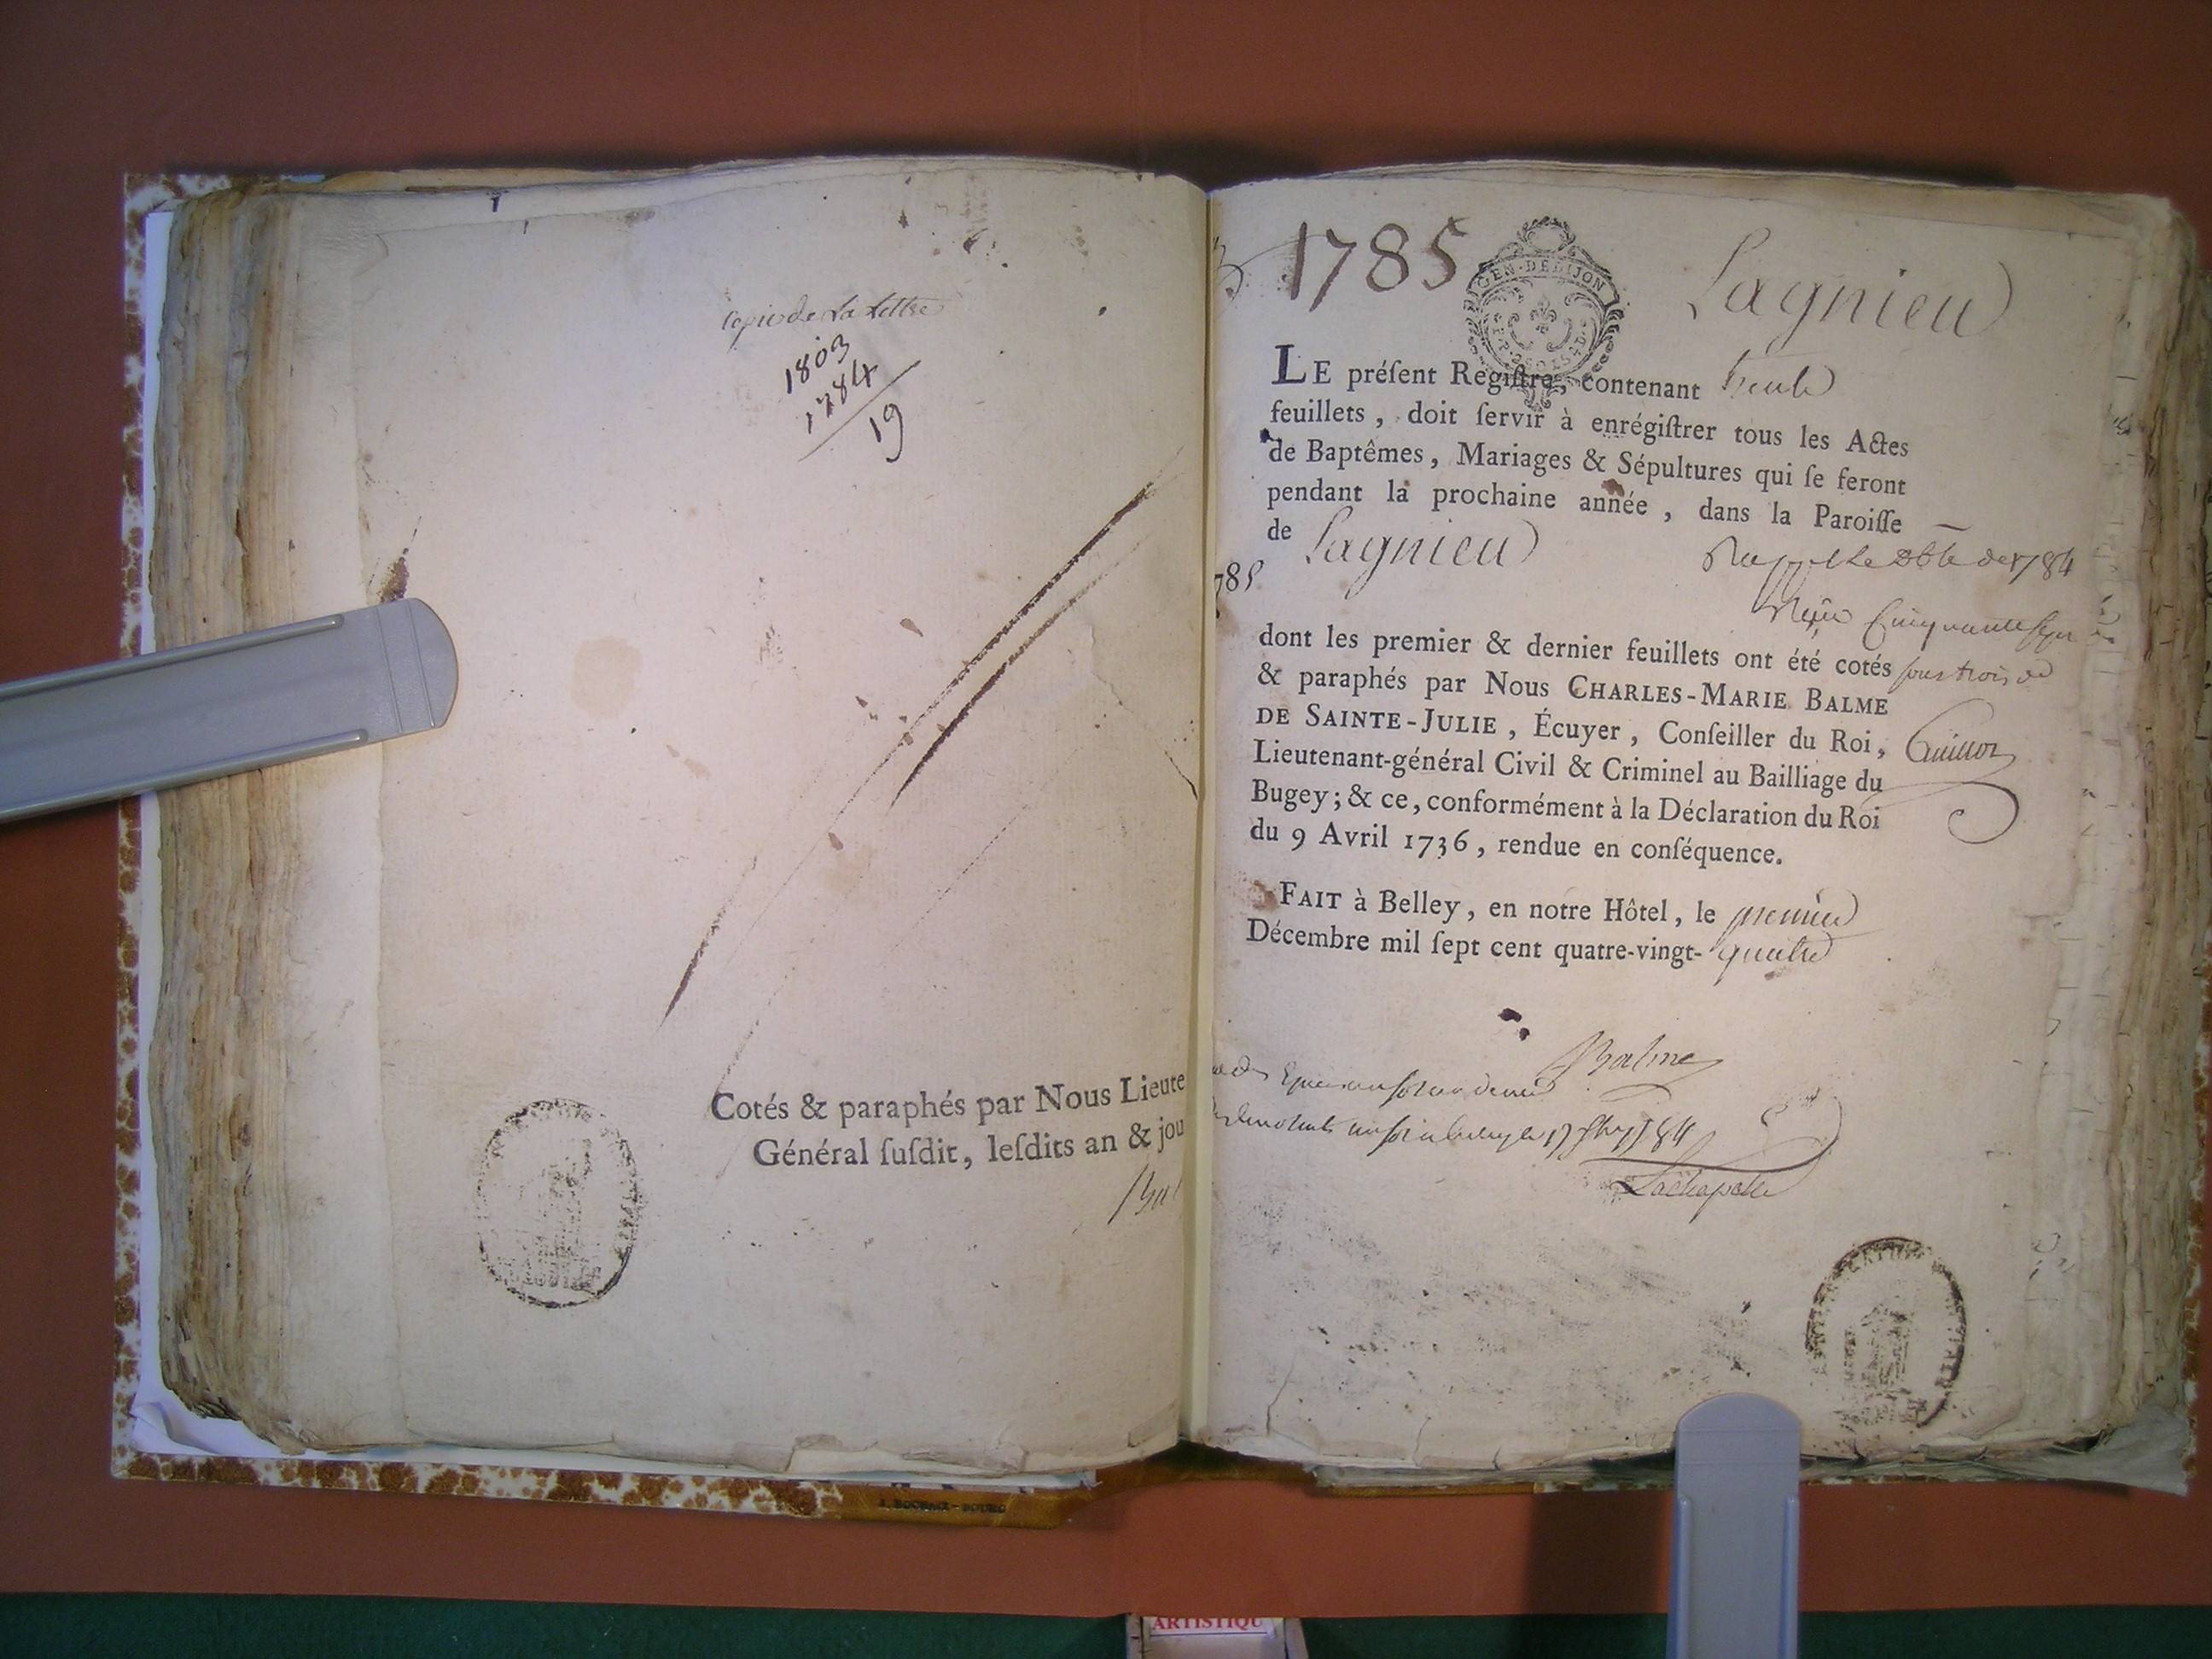 Copie de La Lettre
1803
1784
19
Cotés & paraphés par Nous Lieute
Général ſuſdit, leſdits an & jou
Bal
1785
GEN·DE DIJON
Lagnieu
LE préſent Regiſtre, contenant trente
feuillets, doit ſervir à enrégiſtrer tous les Actes
de Baptêmes, Mariages & Sépultures qui ſe feront
pendant la prochaine année, dans la Paroiſſe
de Lagnieu
785
de 1784
Cinquante
dont les premier & dernier feuillets ont été cotés
sous trois d
& paraphés par Nous CHARLES-MARIE BALME
DE SAINTE-JULIE, Écuyer, Conſeiller du Roi,
Lieutenant-général Civil & Criminel au Bailliage du
Bugey; & ce, conformément à la Déclaration du Roi
du 9 Avril 1736, rendue en conſéquence.
FAIT à Belley, en notre Hôtel, le premier
Décembre mil ſept cent quatre-vingt-quatre
Balme
84
Lachapelle
J. ROCHAIX - BOURG
ARTISTIQU